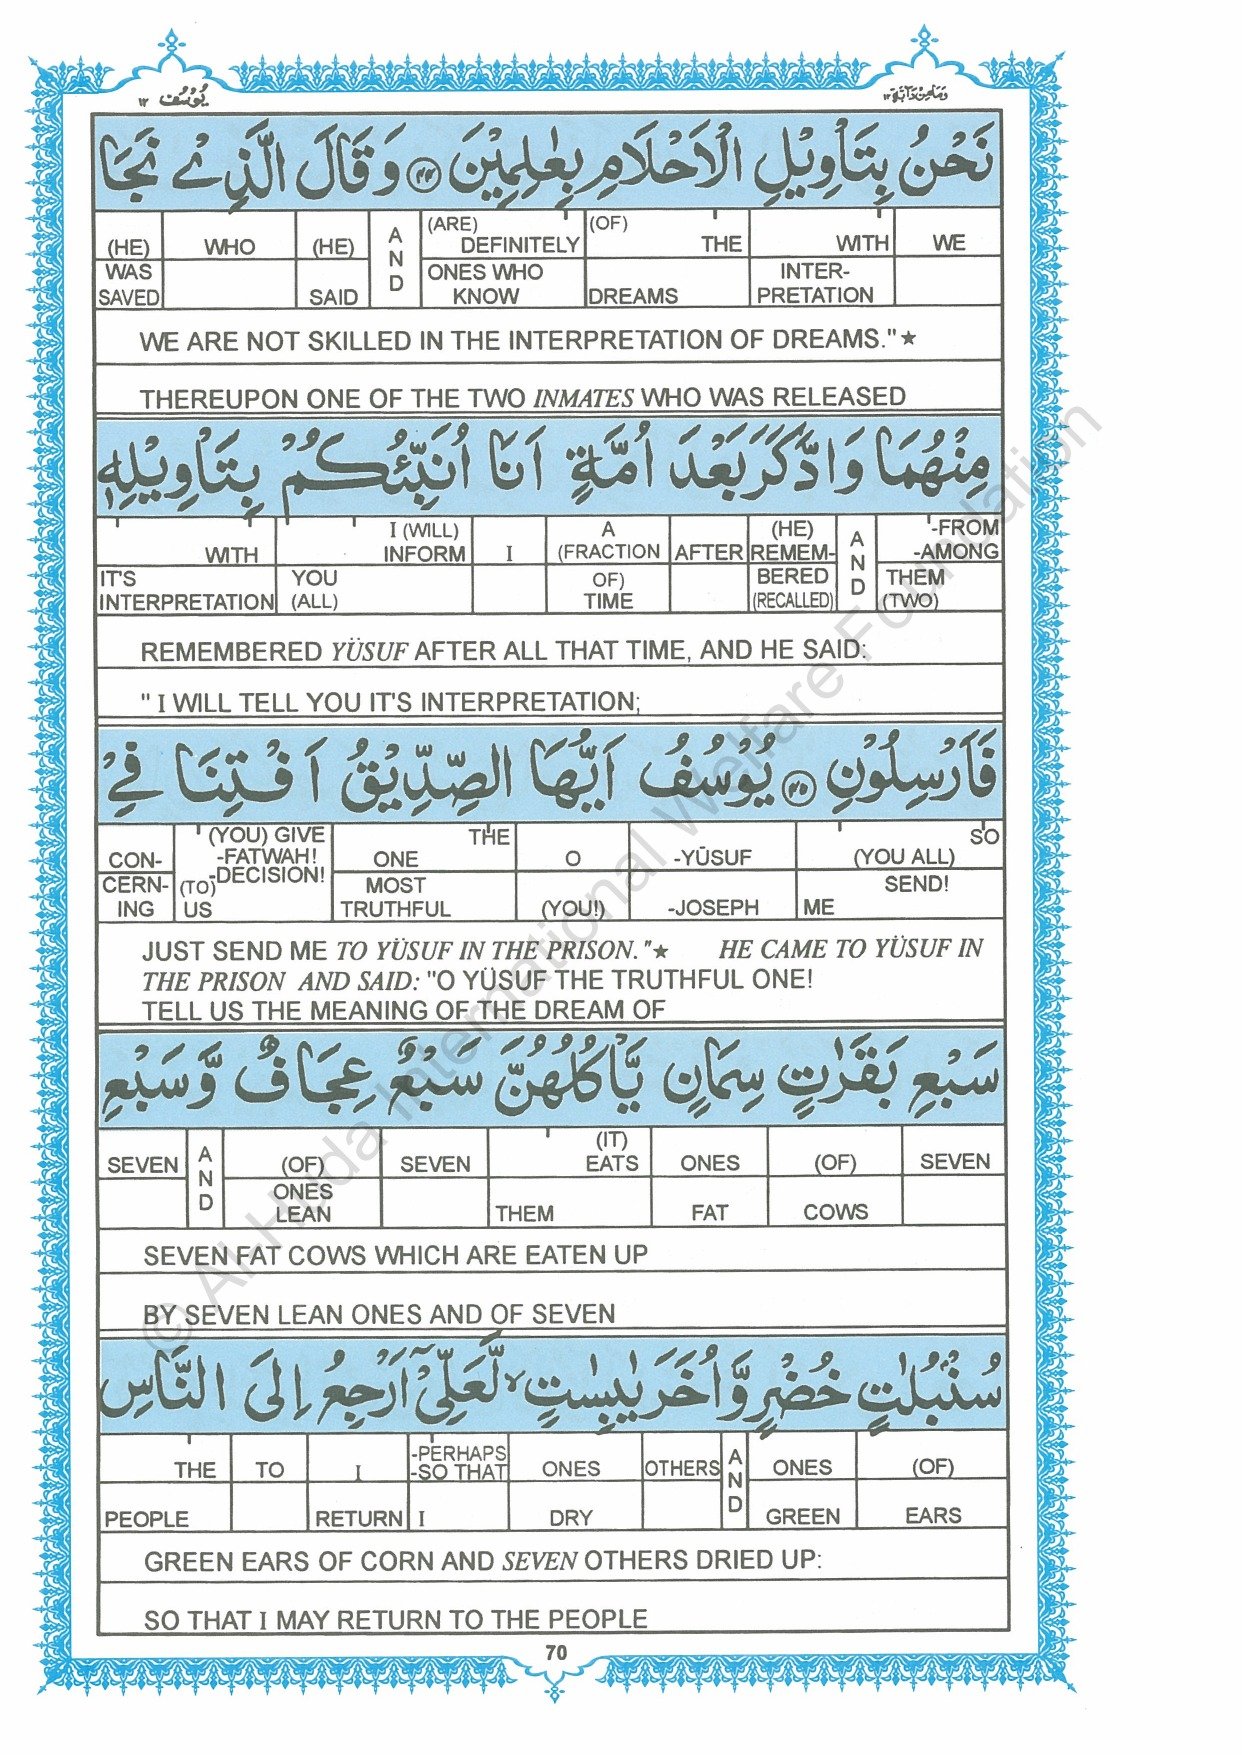 يُوسُف ١٢
وَمَا مِنْ دَآبَّةٍ ١٢
نَحْنُ بِتَأْوِيْلِ الْاَحْلَامِ بِعٰلِمِيْنَ ﴿٤٤﴾ وَقَالَ الَّذِيْ نَجَا
(HE) WHO (HE) AND (ARE) DEFINITELY (OF) THE WITH WE
WAS SAVED SAID ONES WHO KNOW DREAMS INTER- PRETATION
WE ARE NOT SKILLED IN THE INTERPRETATION OF DREAMS."★
THEREUPON ONE OF THE TWO INMATES WHO WAS RELEASED
مِنْهُمَا وَادَّكَرَ بَعْدَ اُمَّةٍ اَنَا اُنَبِّئُكُمْ بِتَأْوِيْلِهٖ
WITH I (WILL) INFORM I A (FRACTION AFTER (HE) REMEM- AND -FROM -AMONG
IT'S INTERPRETATION YOU (ALL) OF) TIME BERED (RECALLED) THEM (TWO)
REMEMBERED YÜSUF AFTER ALL THAT TIME, AND HE SAID:
" I WILL TELL YOU IT'S INTERPRETATION;
فَاَرْسِلُوْنِ ﴿٤٥﴾ يُوْسُفُ اَيُّهَا الصِّدِّيْقُ اَفْتِنَا فِيْ
CON- (YOU) GIVE -FATWAH! -DECISION! THE ONE O -YŪSUF SO (YOU ALL)
CERN- ING (TO) US MOST TRUTHFUL (YOU!) -JOSEPH SEND! ME
JUST SEND ME TO YÜSUF IN THE PRISON."★ HE CAME TO YÜSUF IN
THE PRISON AND SAID: "O YÜSUF THE TRUTHFUL ONE!
TELL US THE MEANING OF THE DREAM OF
سَبْعِ بَقَرٰتٍ سِمَانٍ يَّأْكُلُهُنَّ سَبْعٌ عِجَافٌ وَّسَبْعِ
SEVEN AND (OF) SEVEN (IT) EATS ONES (OF) SEVEN
ONES LEAN THEM FAT COWS
SEVEN FAT COWS WHICH ARE EATEN UP
BY SEVEN LEAN ONES AND OF SEVEN
سُنْۢبُلٰتٍ خُضْرٍ وَّاُخَرَ يٰبِسٰتٍ لَّعَلِّيْٓ اَرْجِعُ اِلَى النَّاسِ
THE TO I -PERHAPS -SO THAT ONES OTHERS AND ONES (OF)
PEOPLE RETURN I DRY GREEN EARS
GREEN EARS OF CORN AND SEVEN OTHERS DRIED UP:
SO THAT I MAY RETURN TO THE PEOPLE
70
© Al-Huda International Welfare Foundation